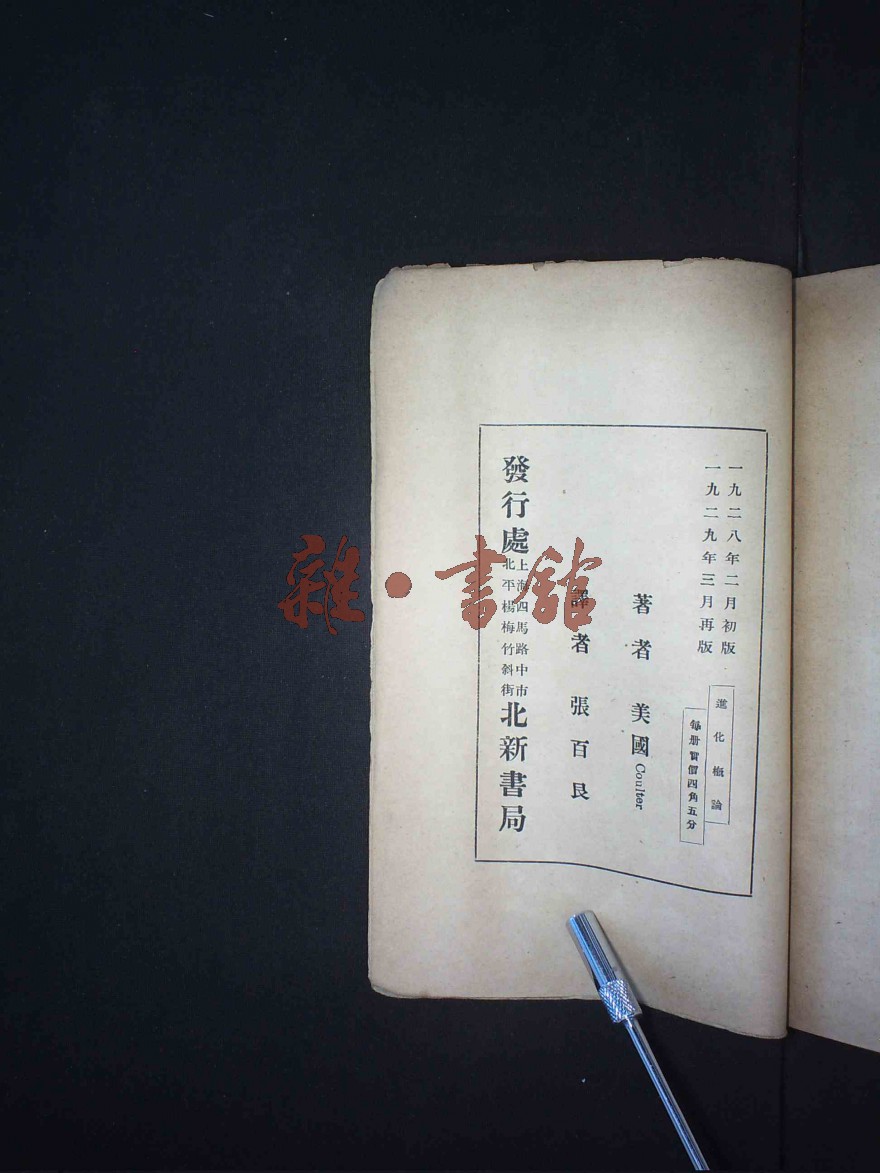 一九二八年二月初版
一九二九年三月再版
進化概論
每册實價四角五分
著者 美國 Coulter
譯者 張百良
發行處
上海四馬路中市
北平楊梅竹斜街
北新書局
雜·書館